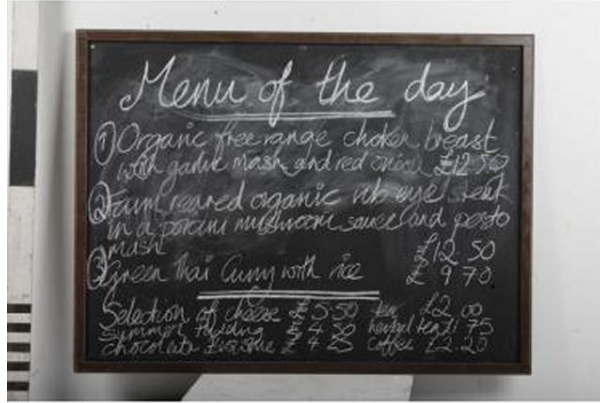 Menu of the day
① Organic free range chicken breast
with garlic mash and red onion £12.50
② Farm reared organic rib eye steak
in a porcini mushroom sauce and pesto
mash £12 50
③ Green Thai Curry with rice £ 9 70
Selection of cheese £ 5 50 tea £2 00
Summer Pudding £ 4 50 herbal tea £1 75
chocolate £ 4 coffee £2.20